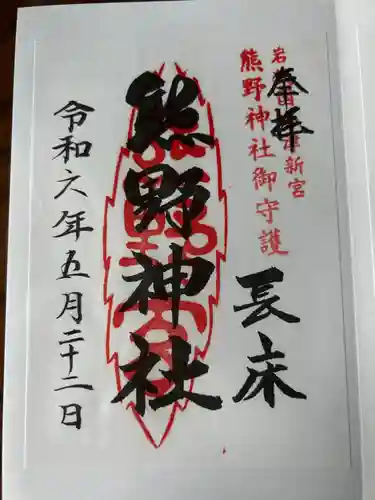 奉拝
熊野神社御守護
新宮
長床
熊野神社
令和六年五月二十二日